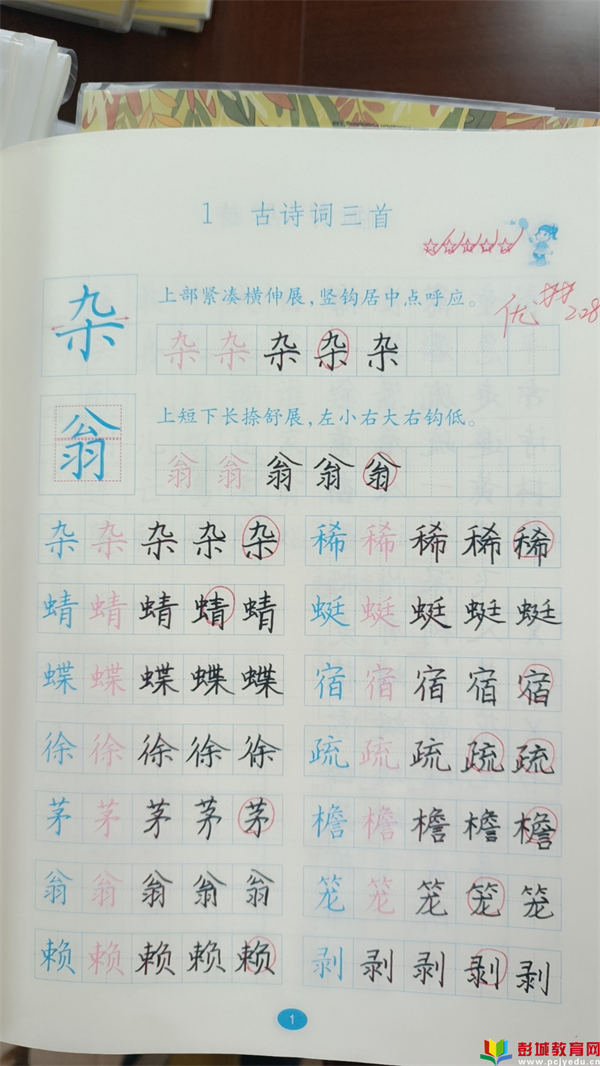 1 古诗词三首
杂 上部紧凑横伸展,竖钩居中点呼应。
优 2.28
杂 杂 杂 杂 杂
翁 上短下长捺舒展,左小右大右钩低。
翁 翁 翁 翁 翁
杂 杂 杂 杂 杂 稀 稀 稀 稀 稀
蜻 蜻 蜻 蜻 蜻 蜓 蜓 蜓 蜓 蜓
蝶 蝶 蝶 蝶 蝶 宿 宿 宿 宿 宿
徐 徐 徐 徐 徐 疏 疏 疏 疏 疏
茅 茅 茅 茅 茅 檐 檐 檐 檐 檐
翁 翁 翁 翁 翁 笼 笼 笼 笼 笼
赖 赖 赖 赖 赖 剥 剥 剥 剥 剥
1
彭城教育网
www.pcjyedu.cn